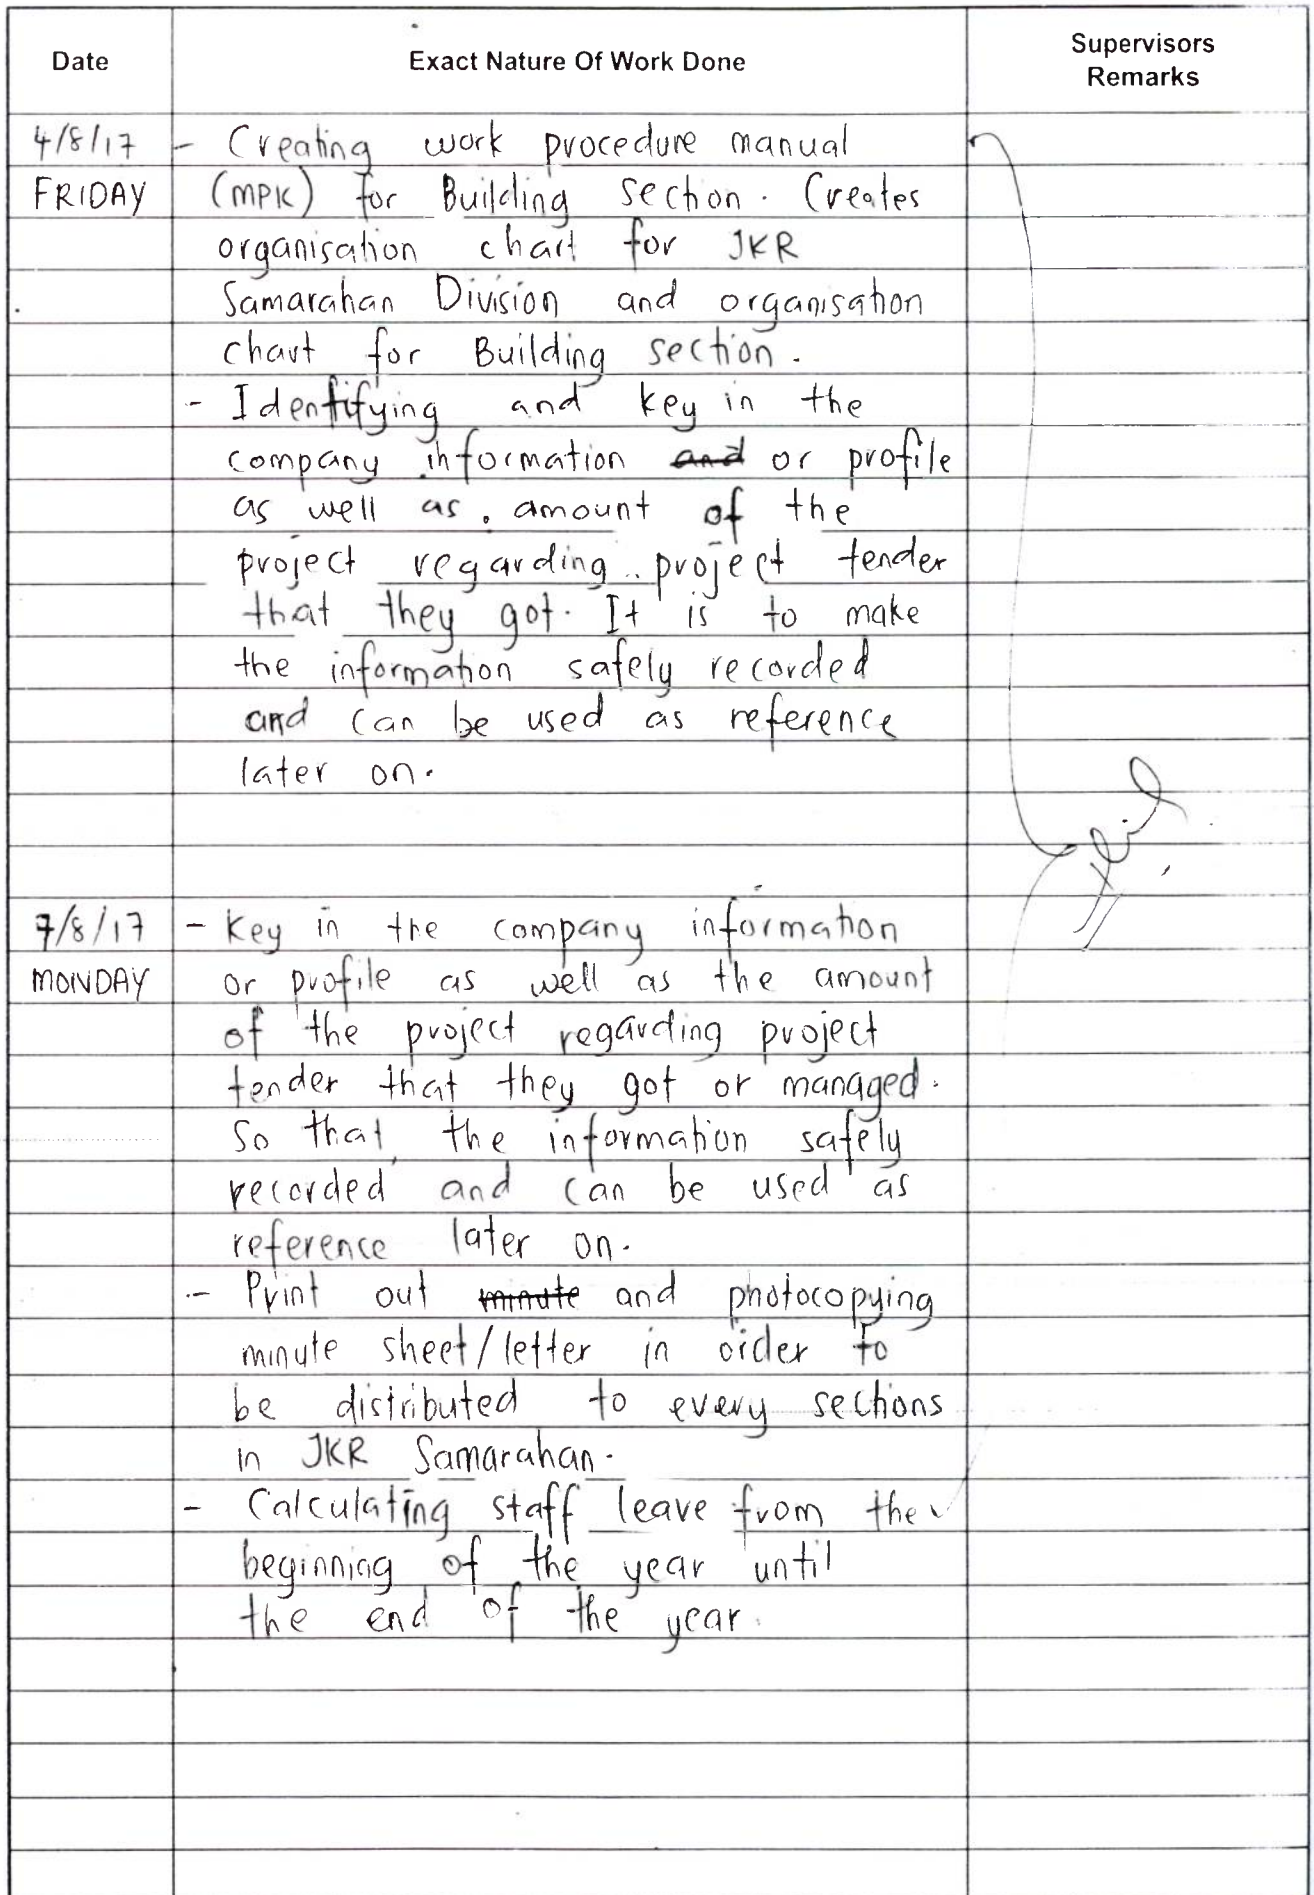 Date Exact Nature Of Work Done Supervisors
Remarks
4/8/17 - Creating work procedure manual
FRIDAY (MPK) for Building section. Creates
organisation chart for JKR
Samarahan Division and organisation
chart for Building section.
- Identifying and key in the
company information and or profile
as well as amount of the
project regarding project tender
that they got. It is to make
the information safely recorded
and can be used as reference
later on.
7/8/17 - Key in the company information
MONDAY or profile as well as the amount
of the project regarding project
tender that they got or managed.
So that, the information safely
recorded and can be used as
reference later on.
- Print out minute and photocopying
minute sheet/letter in order to
be distributed to every sections
in JKR Samarahan.
- Calculating staff leave from the
beginning of the year until
the end of the year.